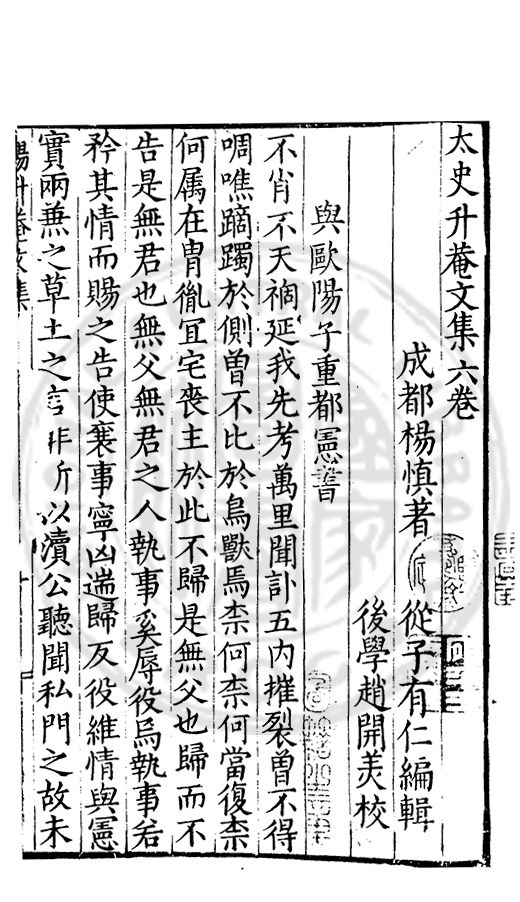 太史升菴文集六卷
成都楊慎著 從子有仁編輯
後學趙開美校
與歐陽子重都憲書
不肖不天禍延我先考萬里聞訃五内摧裂曾不得
啁噍蹢躅於側曾不比於鳥獸焉柰何柰何當復柰
何属在胄胤冝宅喪主於此不歸是無父也歸而不
告是無君也無父無君之人執事奚辱役焉執事若
矜其情而賜之告使襄事寧凶遄歸反役維情與憲
實兩兼之草土之言非所以瀆公聽聞私門之故未
楊升菴文集